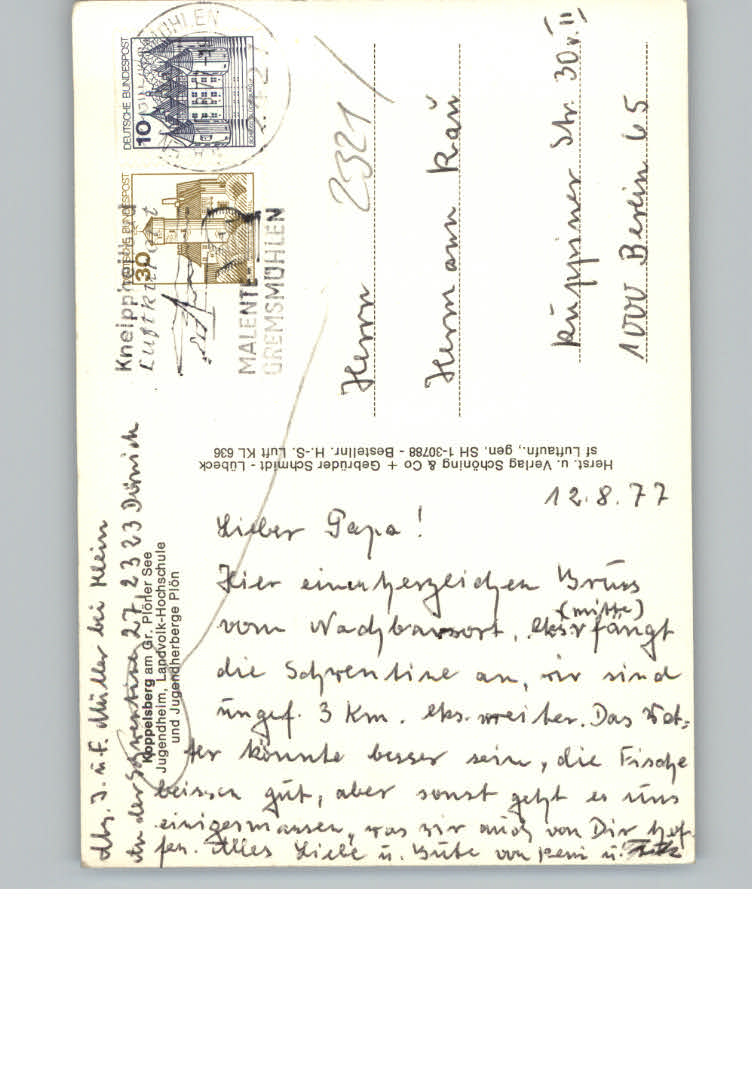 12.8.77
Lieber Papa!
Hier einen herzlichen Gruss
(mitte)
vom Nachbarsort, fängt
die Schwentine an, wir sind
ungef. 3 Km. weiter. Das Wet-
ter könnte besser sein, die Fische
beissen gut, aber sonst geht es uns
einigermassen, was wir auch von Dir hof-
fen. Alles Liebe u. Gute von u.
Abs. J. u. F. Müller bei Klein
An der Schwentine 27, 2323 Dörnick
Koppelsberg am Gr. Plöner See
Jugendheim, Landvolk-Hochschule
und Jugendherberge Plön
Herst. u. Verlag Schöning & Co + Gebrüder Schmidt - Lübeck
sf Luftaufn., gen. SH 1-30788 - Bestellnr. H.-S. Luft KL 636
DEUTSCHE BUNDESPOST
10
DEUTSCHE BUNDESPOST
30
Luftkurort
MALENTE-
GREMSMÜHLEN
2321
Herrn
Hermann Kaŭ
Ruppiner Str. 30 v. II
1000 Berlin 65